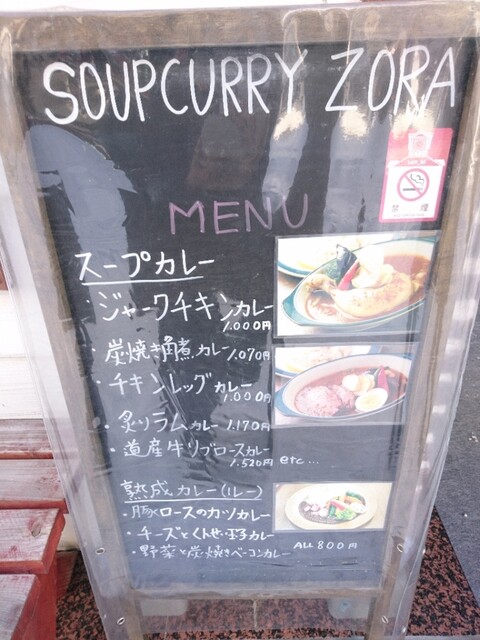 SOUPCURRY ZORA
MENU
スープカレー
・ジャークチキンカレー
1.000円
・炭焼き角煮カレー 1.070円
・チキンレッグカレー
1.000円
・炙りラムカレー 1.170円
・道産牛リブロースカレー
1.520円 etc...
熟成カレー(ルー)
・豚ロースのカツカレー
・チーズとくんせい玉子カレー
ALL 800円
・野菜と炭焼きベーコンカレー
禁煙